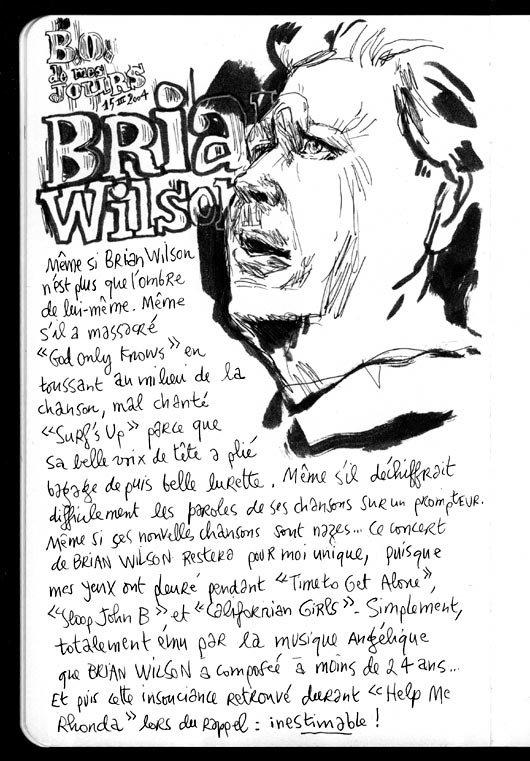 B.O.
de mes
JOURS
15 III 2004
BRIAN
WILSON
Même si BRIAN WILSON
n'est plus que l'ombre
de lui-même. Même
s'il a massacré
"God only knows" en
toussant au milieu de la
chanson, mal chanté
"Surf's Up" parce que
sa belle voix de tête a plié
bagage depuis belle lurette. Même s'il déchiffrait
difficilement les paroles de ses chansons sur un prompteur.
Même si ses nouvelles chansons sont nazes... Ce concert
de BRIAN WILSON RESTERA pour moi unique, puisque
mes yeux ont pleuré pendant "Time to Get Alone",
"Sloop John B" et "Californian Girls". Simplement,
totalement ému par la musique Angélique
que BRIAN WILSON a composée à moins de 24 ans...
Et puis cette insouciance retrouvé durant "Help Me
Rhonda" lors du rappel : inestimable !